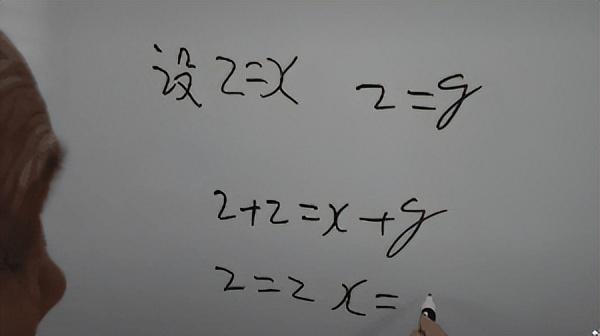 设 2=x 2=y
2+2=x+y
2=2 x=